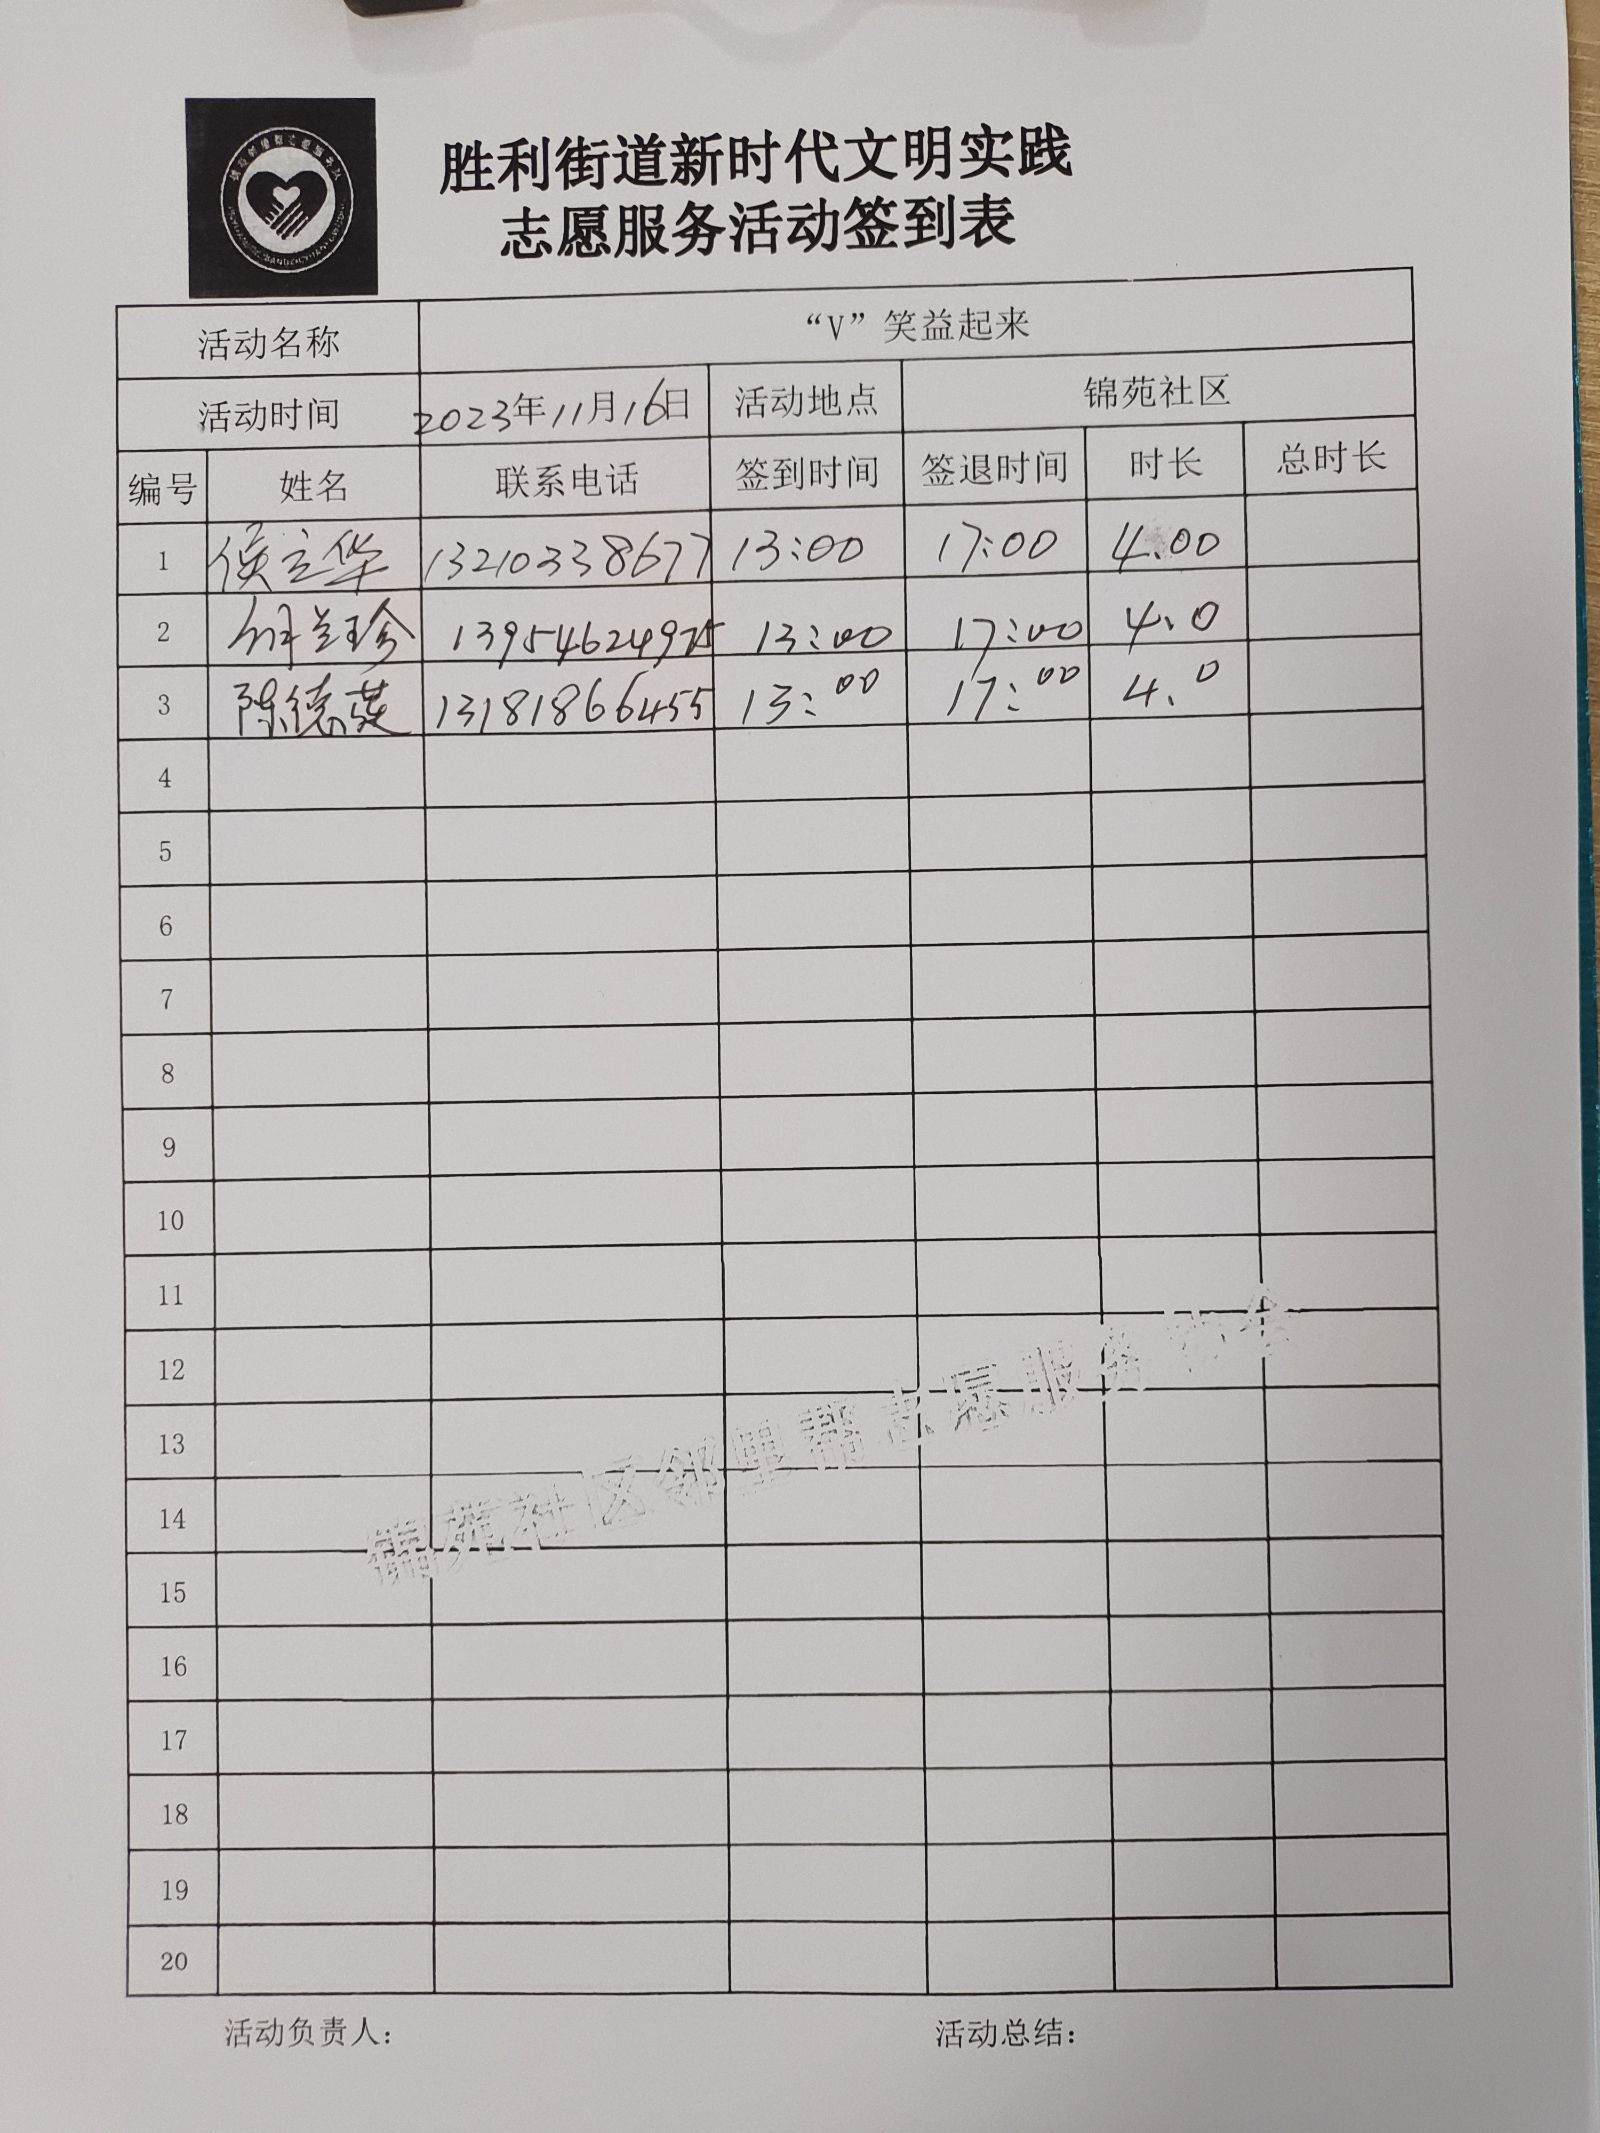 胜利街道新时代文明实践
志愿服务活动签到表
活动名称 “V”笑益起来
活动时间 2023年11月16日 活动地点 锦苑社区
编号 姓名 联系电话 签到时间 签退时间 时长 总时长
1 侯立华 13210338677 13:00 17:00 4.00
2 兰珍 13954624975 13:00 17:00 4.0
3 陈德英 13181866455 13:00 17:00 4.0
4
5
6
7
8
9
10
11
12
13
14
15
16
17
18
19
20
锦苑社区邻里帮志愿服务协会
活动负责人: 活动总结: